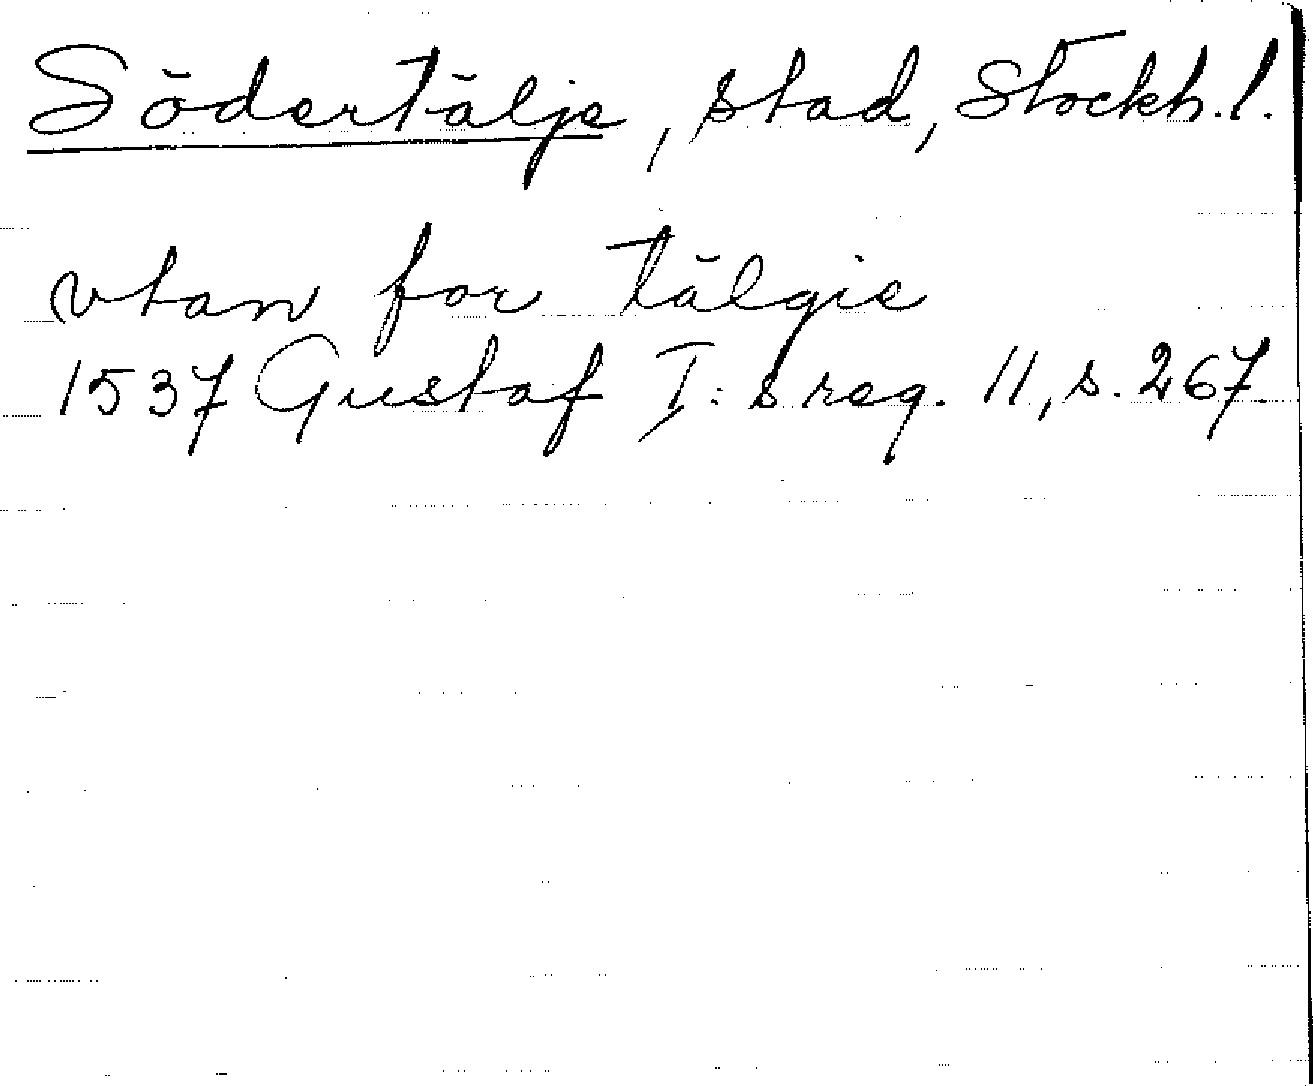 Södertälje, stad, Stockh.l.
vtan for tälgie
1537 Gustaf I:s reg. 11, s. 267.